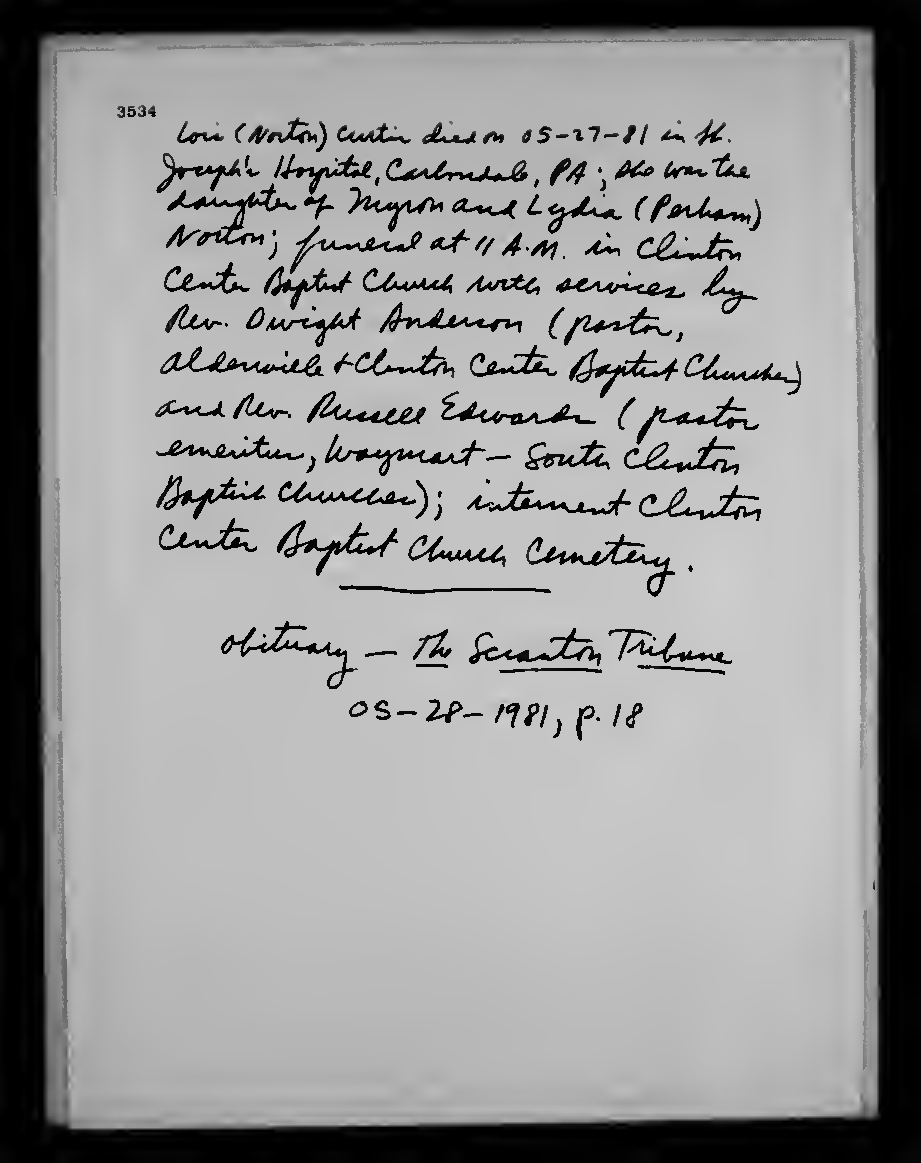 3534
Lois (Norton) Curtis died on 05-27-81 in St.
Joseph's Hospital, Carbondale, PA; she was the
daughter of Myron and Lydia (Perham)
Norton; funeral at 11 A.M. in Clinton
Center Baptist Church with services by
Rev. Dwight Anderson (pastor,
Aldenville & Clinton Center Baptist Churches)
and Rev. Russell Edwards (pastor
emeritus, Waymart - South Clinton
Baptist Churches); interment Clinton
Center Baptist Church Cemetery.
obituary - The Scranton Tribune
05-28-1981, p. 18